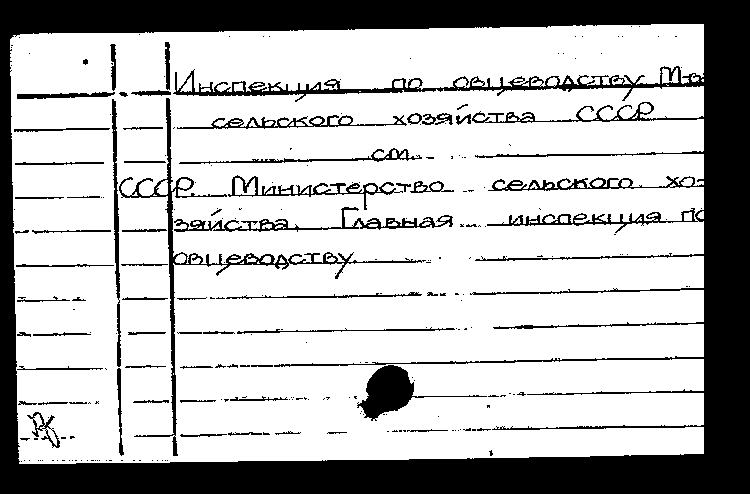 Инспекция по овцеводству М-ва
сельского хозяйства СССР
см.
СССР. Министерство сельского хо-
зяйства. Главная инспекция по
овцеводству.